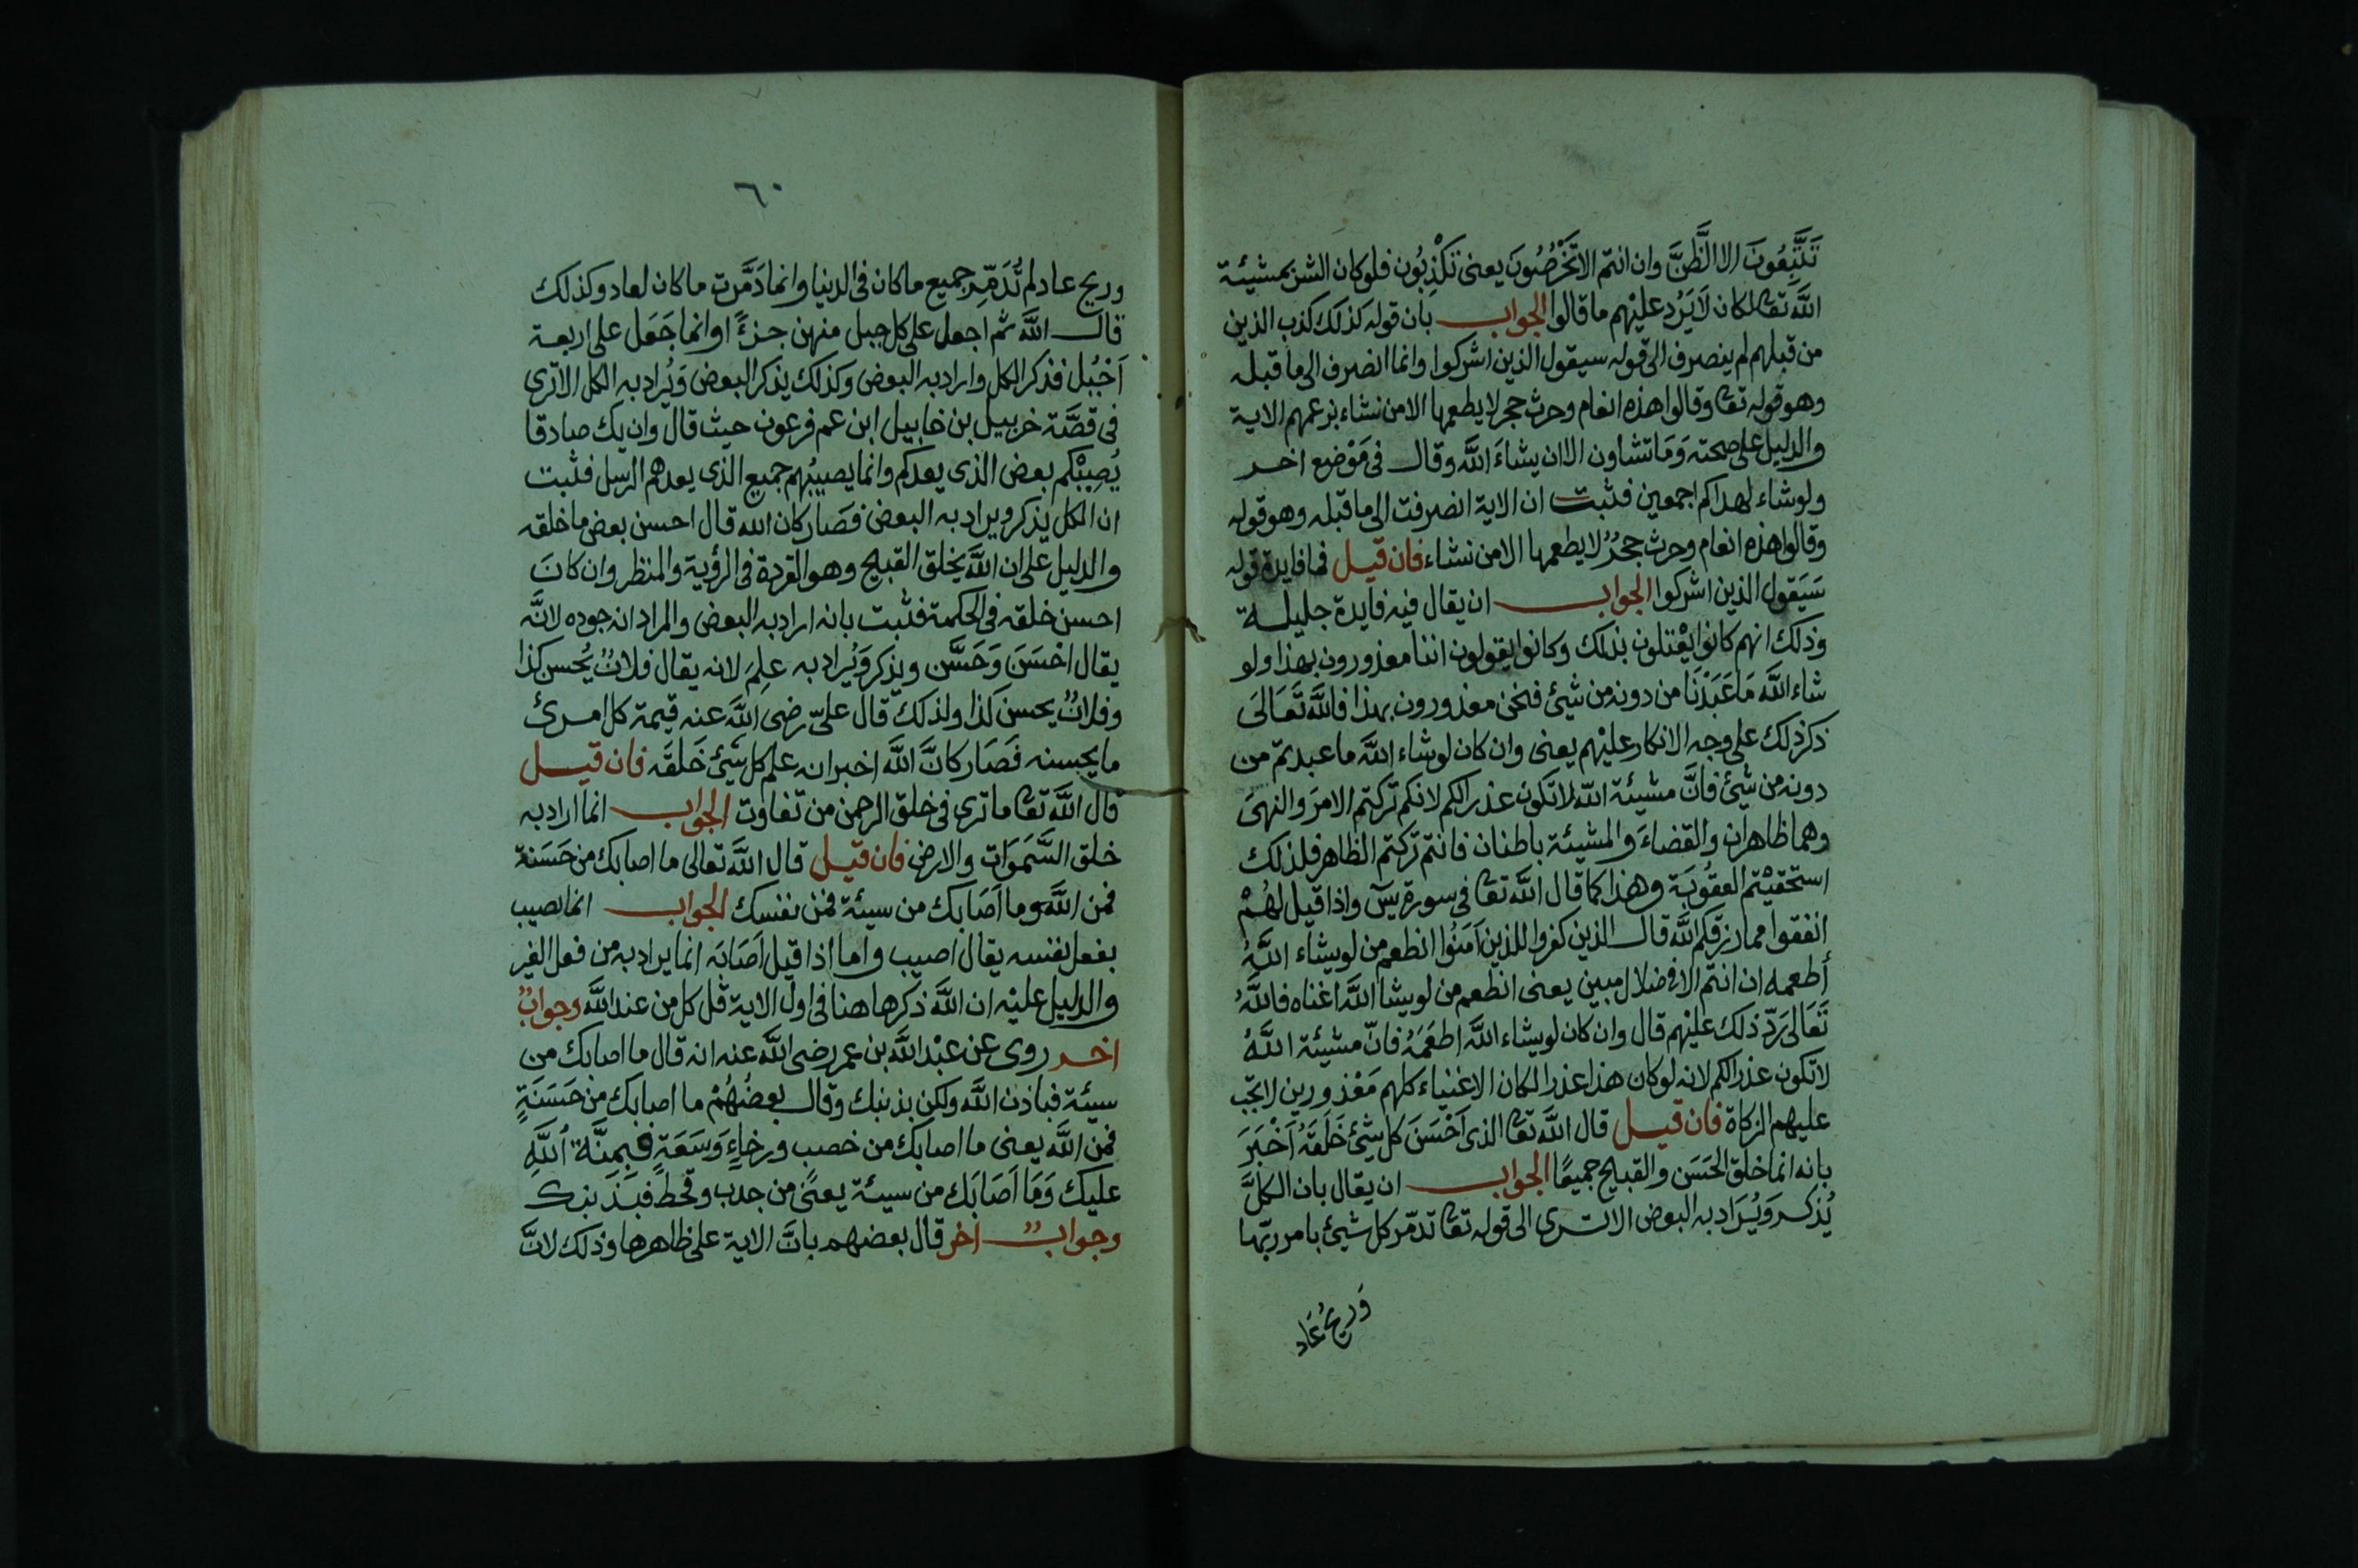 تَتَّبِعُونَ الا الظَّنَّ وان انتم الا تَخْرُصُونَ يعنى تَكْذِبُون فلو كان الشئ بمشيئة
اللَّه تعا لكان لَا يَرُد عليْهم ما قالوا الجواب بان قوله كذلك كذب الذين
من قبلهم لم ينصرف الى قوله سيقول الذين اشركوا وانما انصرف الى ما قبله
وهو قوله تعا وقالوا هذه انعام وحرث حجر لا يطعمها الا من نشاء بزعمهم الاية
والدليل على صحته وَمَا تشاون الا ان يشاءَ اللَّه وقال فى مَوْضع اخر
ولو شاء لهداكم اجمعين فثبت ان الاية انصرفت الى ما قبله وهو قوله
وقالوا هذه انعام وحرث حجرٌ لا يطعمها الا من نشاء فان قيل فما فايدة قوله
سَيَقول الذين اشركوا الجواب ان يقال فيه فايدة جليلة
وذلك انهم كانوا يعْتلون بذلك وكانوا يقولون اننا معذورون بهذا ولو
شاء اللَّه مَا عَبَدْنَا من دونه من شيئ فنحن معذورون بهذا فاللَّه تَعَالَى
ذكر ذلك على وجه الانكار عليْهم يعنى وان كان لو شاء اللَّه ما عبدتم من
دونه من شيئ فانَّ مشيئة اللّه لا تكون عذرا لكم لانكم تركتم الامرَ والنهىَ
وهما ظاهران والقضاءَ والمشيئة باطنان فانتم تركتم الظاهر فلذلك
استحقيْتم العقُوبَة وهذا كما قال اللَّه تعا فى سورة يسٓ واذا قيل لهُمْ
انفقوا مما رزقكم اللَّه قال الذين كفروا للذين اَمَنُوا انطعم من لو يشاء اللَّهُ
أطعمه ان انتم الا فى ضلال مبين يعنى انطعم من لو يشا اللَّه اغناه فاللَّهُ
تَعَالى رَدّ ذلك عليْهم قال وان كان لو يشاء اللَّه اطعَمَهُ فانّ مشيئة اللَّهُ
لا تكون عذرا لكم لانه لو كان هذا عذرا لكان الاغنياء كلهم مَعْذورين لا تجب
عليهم الزكاة فان قيل قال اللَّه تعا الذى اَحْسَنَ كل شيْئ خَلَقَهُ اَخْبَرَ
بانه انما خلق الحَسَن والقبيح جميعًا الجواب ان يقال بان الكلَّ
يُذكر وَيُرَاد به البعض الا ترى الى قوله تعا تدمّر كل شيئ بامر ربّها
وَريحُ عَاد
٦٠
وريح عاد لم تُدَمِّر جميع ما كان فى الدنيا وانما دَمَّرت ما كان لعاد وكذلك
قال اللَّه ثم اجعل على كل جبل منهن جزءً ا وانما جَعَل على اربعة
اَجْبُل فذكر الكل واراد به البعض وكذلك يذكر البعض وَيُراد به الكل الا ترى
فى قصَّة خربيل بن خابيل ابن عم فرعون حيث قال وان يك صادقا
يُصِبْكم بعض الذى يعدكم وانما يصيبُهم جميع الذى يعدهم الرسل فثبت
ان الكل يذكر ويراد به البعض فصَار كان الله قال احسن بعض ما خلقه
والدليل على ان اللَّه يخلق القبيح وهو القردة فى الرؤية والمنظر وان كانَ
احسن خلقه فى الحكمة فثبت بانه اراد به البعض والمراد انه جوده لانَّه
يقال احْسَنَ وَحَسَّن ويذكر وَيُراد به عِلِمَ لانه يقال فلانٌ يُحسن كذا
وفلانٌ يحسن كذا ولذلك قال علىّ رضى اللَّه عنه قيمة كل امرئ
ما يحسنه فَصَار كانَّ اللَّه اخبر انه علم كل شَيْئ خَلقَه فان قيل
قال اللَّه تعا ما ترى فى خلق الرحمن من تفاوت الجواب انما اراد به
خلق السَّمَوَات والارض فان قيل قال اللَّه تعالى ما اصابك من حَسَنة
فمن اللَّه وما اَصَابك من سيئة فمن نفسك الجواب انما نصيب
بفعل نفسه يقال اصيب واما اذا قيل اَصَابَه انما يراد به من فعل الغير
والدليل عليْه ان اللَّه ذكر هاهنا فى اول الاية قل كل من عند اللَّه وجوابٌ
اخر روى عن عبْد اللَّه بن عمر رضى اللَّه عنه انه قال ما اصابك من
سيئة فباذن اللَّه ولكن بذنبك وقال بعضُهُمْ ما اصابك من حَسَنَةٍ
فمن اللَّه يعنى ما اصابك من خصب ورخاءٍ وَسَعَةٍ فبِمِنَّة اللَّهِ
عليك وَمَا اَصَابَك من سيئة يعنى من جدب وقحط فبذنبك
وجوابٌ اخر قال بعضهم بانَّ الاية على ظاهرها وذلك لانَّ